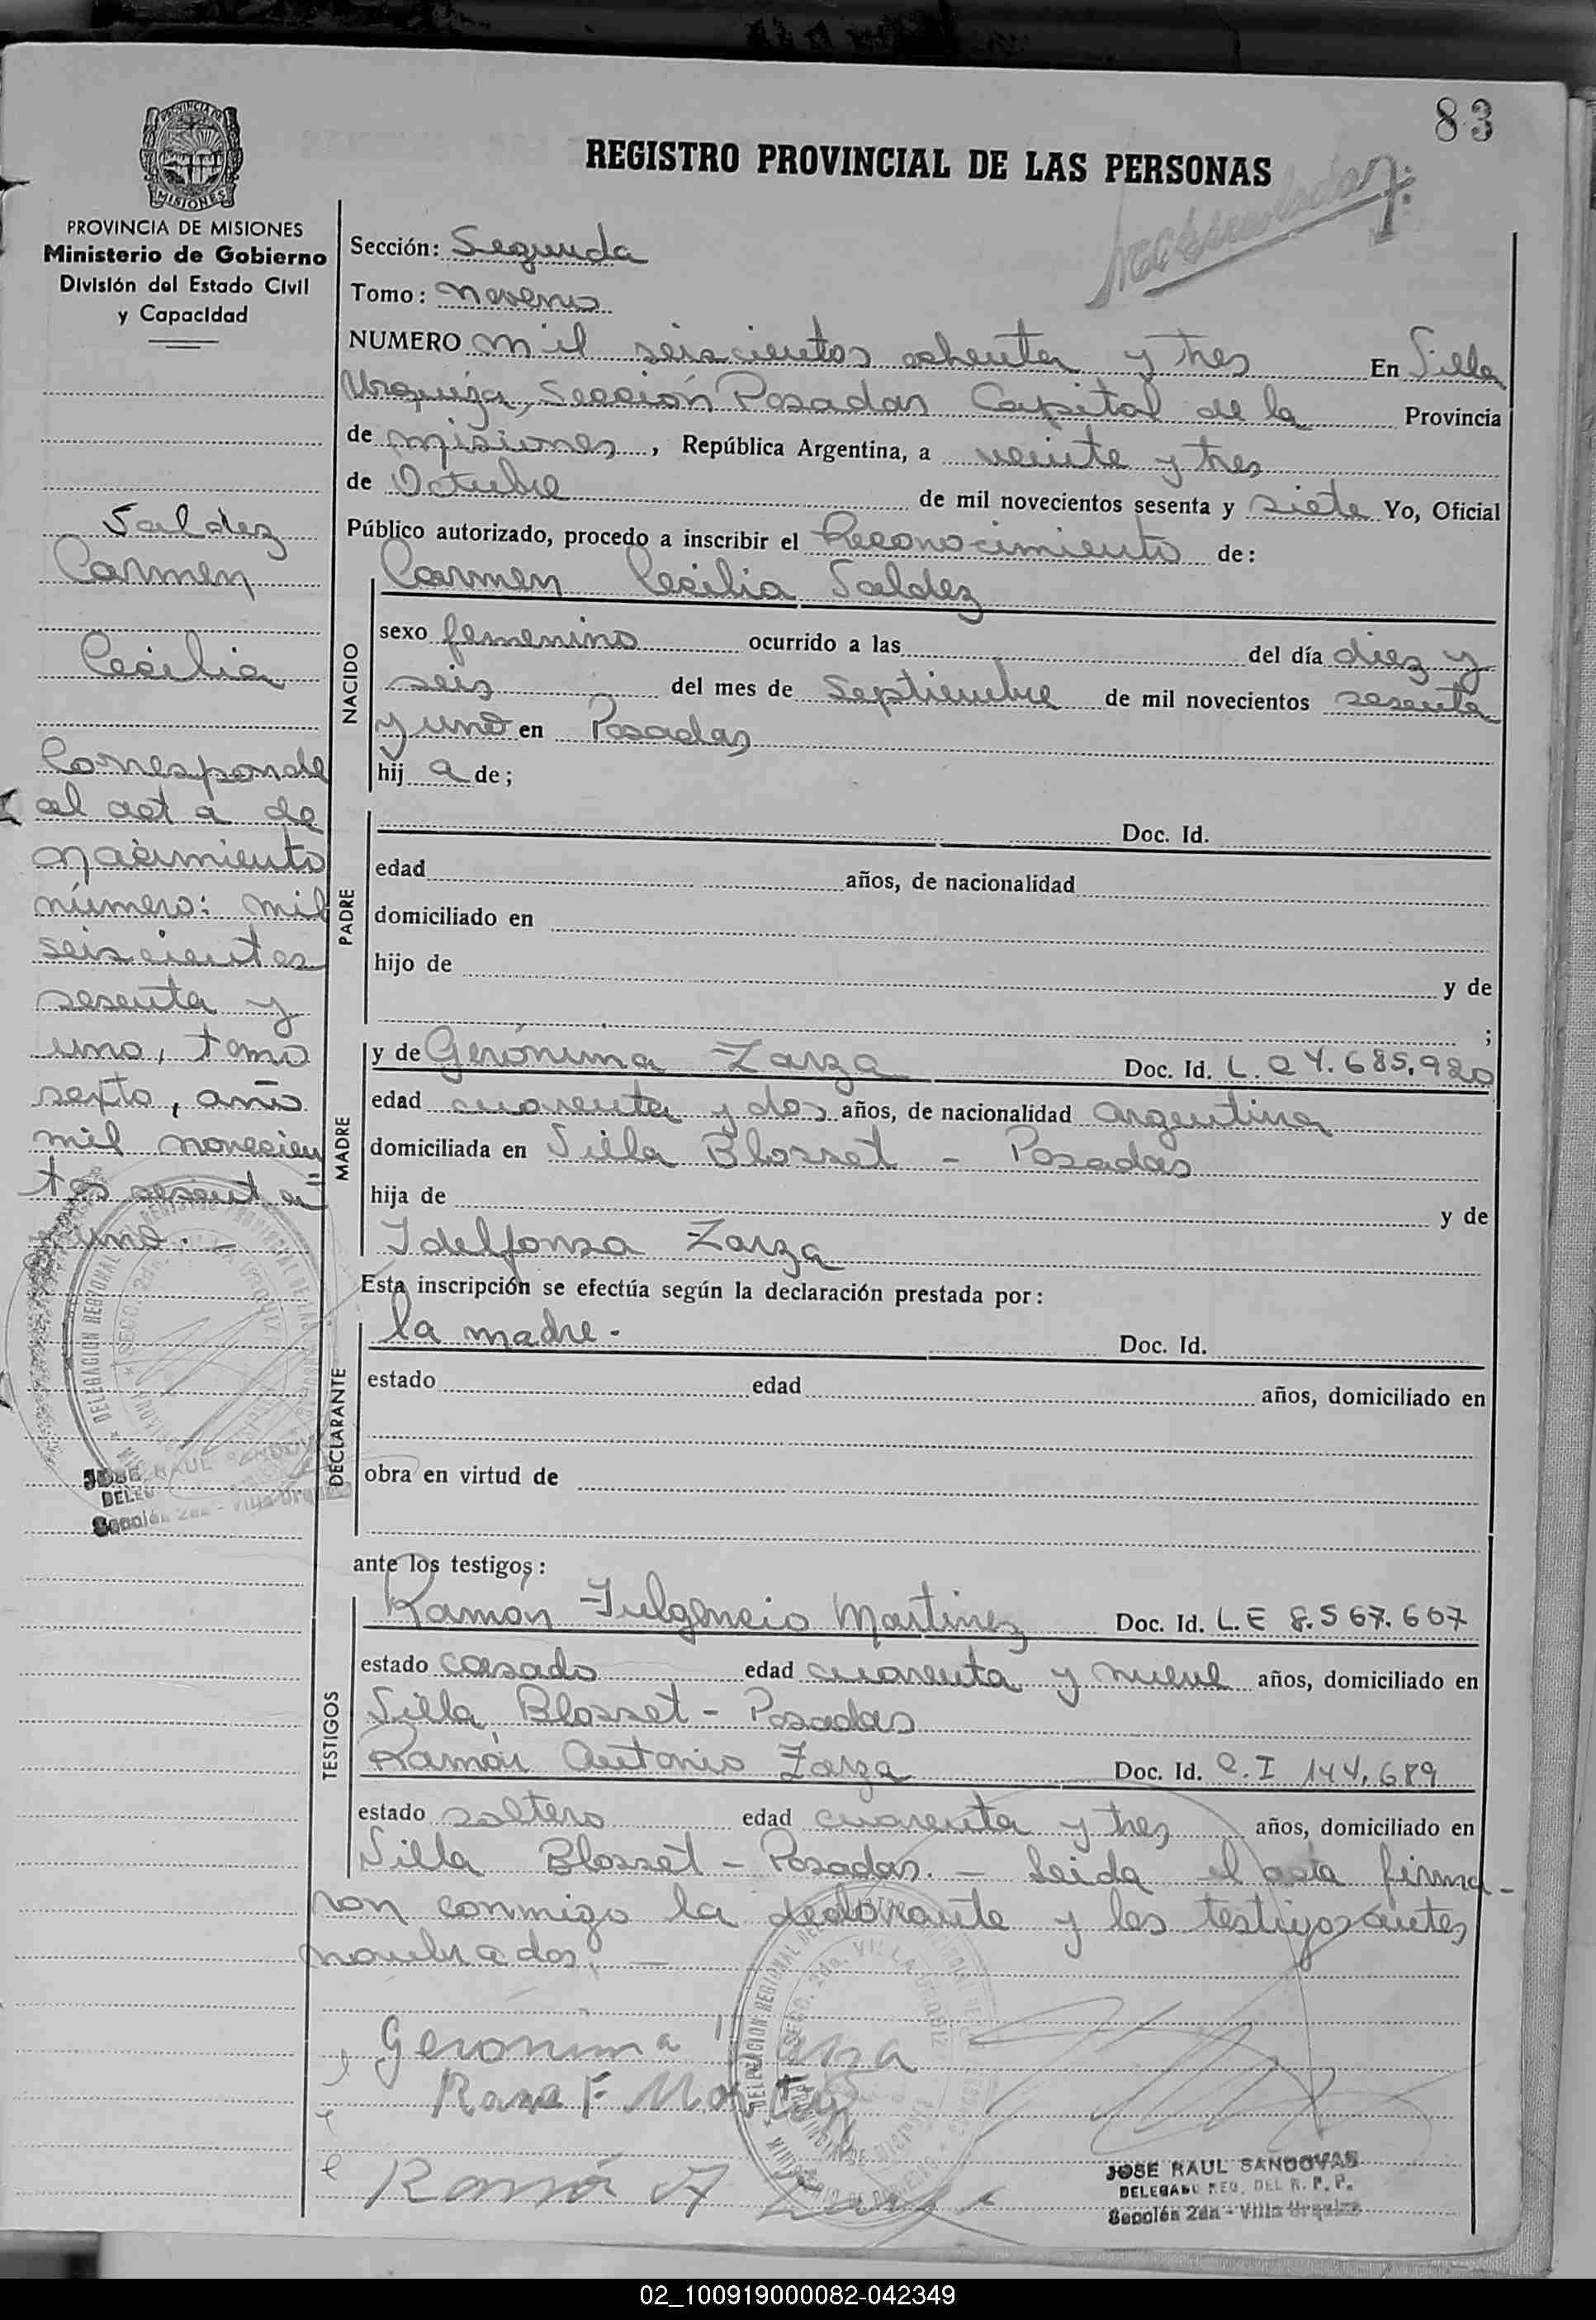 83
REGISTRO PROVINCIAL DE LAS PERSONAS
PROVINCIA DE MISIONES
Ministerio de Gobierno
División del Estado Civil
y Capacidad
Saldez
Carmen
Cecilia
Corresponde
al acta de
nacimiento
número: mil
seiscientos
sesenta y
uno, tomo
sexto, año
mil novecien
tos sesenta
y uno. -
Sección: Segunda
Tomo: noveno
NUMERO mil seiscientos ochenta y tres En Villa
Urquiza, Sección Posadas Capital de la Provincia
de misiones, República Argentina, a veinte y tres
de Octubre de mil novecientos sesenta y siete Yo, Oficial
Público autorizado, procedo a inscribir el Reconocimiento de:
Carmen Cecilia Saldez
NACIDO
sexo femenino ocurrido a las del día diez y
seis del mes de Septiembre de mil novecientos sesenta
y uno en Posadas
hij a de;
PADRE
Doc. Id.
edad años, de nacionalidad
domiciliado en
hijo de y de
;
MADRE
y de Gerónima Zarza Doc. Id. L. C 4.685.920
edad cuarenta y dos años, de nacionalidad argentina
domiciliada en Villa Blosset - Posadas
hija de y de
Idelfonsa Zarza
Esta inscripción se efectúa según la declaración prestada por:
DECLARANTE
la madre. Doc. Id.
estado edad años, domiciliado en
obra en virtud de
ante los testigos:
TESTIGOS
Ramón Fulgencio Martinez Doc. Id. L.E 8.567.607
estado casado edad cuarenta y nueve años, domiciliado en
Villa Blosset - Posadas
Ramón Antonio Zarza Doc. Id. C.I 144.689
estado soltero edad cuarenta y tres años, domiciliado en
Villa Blosset - Posadas. - Leida el acta firma-
ron conmigo la declarante y los testigos antes
nombrados. -
Gerónima Zarza
Ramon F Martinez
Ramón A Zarza
JOSE RAUL SANDOVAL
DELEGADO REG. DEL R. P. P.
Sección 2da - Villa Urquiza
02_100919000082-042349